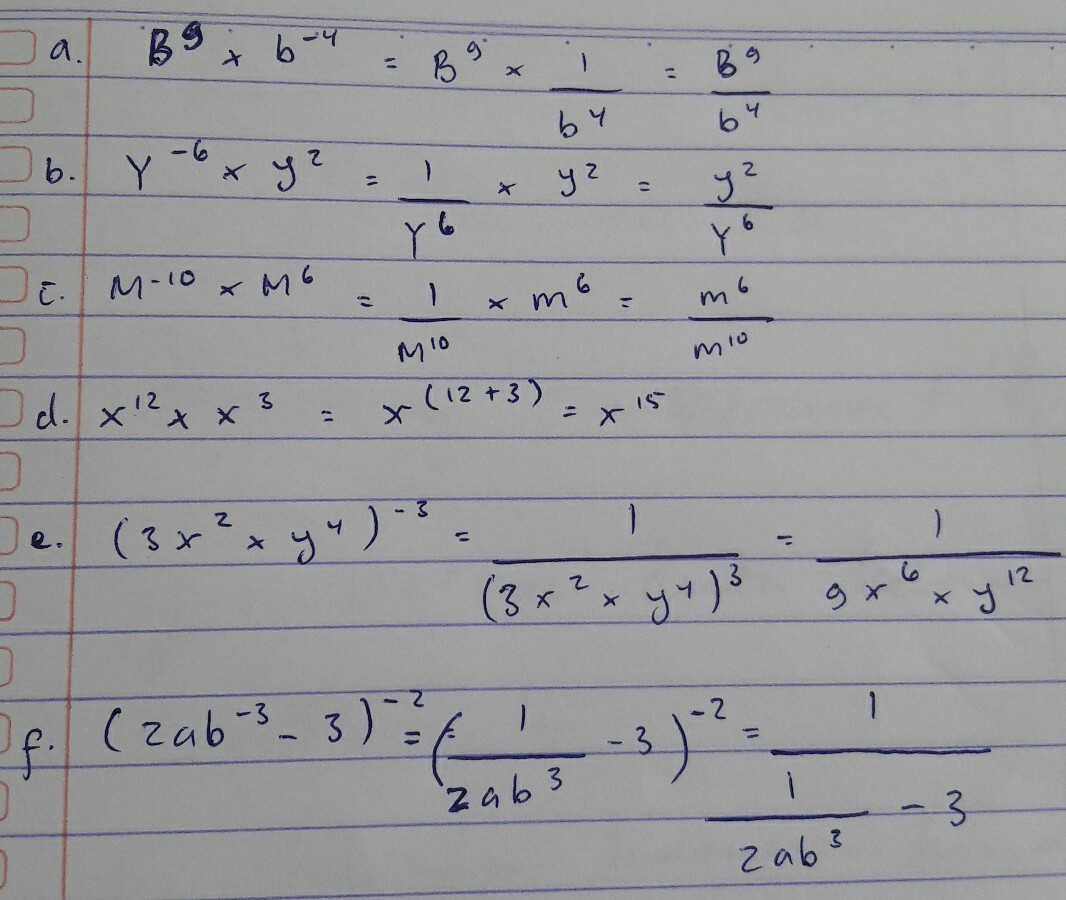 a. B⁹ × b⁻⁴ = B⁹ × 1/b⁴ = B⁹/b⁴
b. Y⁻⁶ × y² = 1/Y⁶ × y² = y²/Y⁶
c. M-¹⁰ × M⁶ = 1/M¹⁰ × m⁶ = m⁶/m¹⁰
d. x¹² × x³ = x⁽¹²⁺³⁾ = x¹⁵
e. (3x² × y⁴)⁻³ = 1/(3x² × y⁴)³ = 1/(9x⁶ × y¹²)
f. (2ab⁻³ - 3)⁻² = (1/(2ab³) - 3)⁻² = 1/(1/(2ab³) - 3)